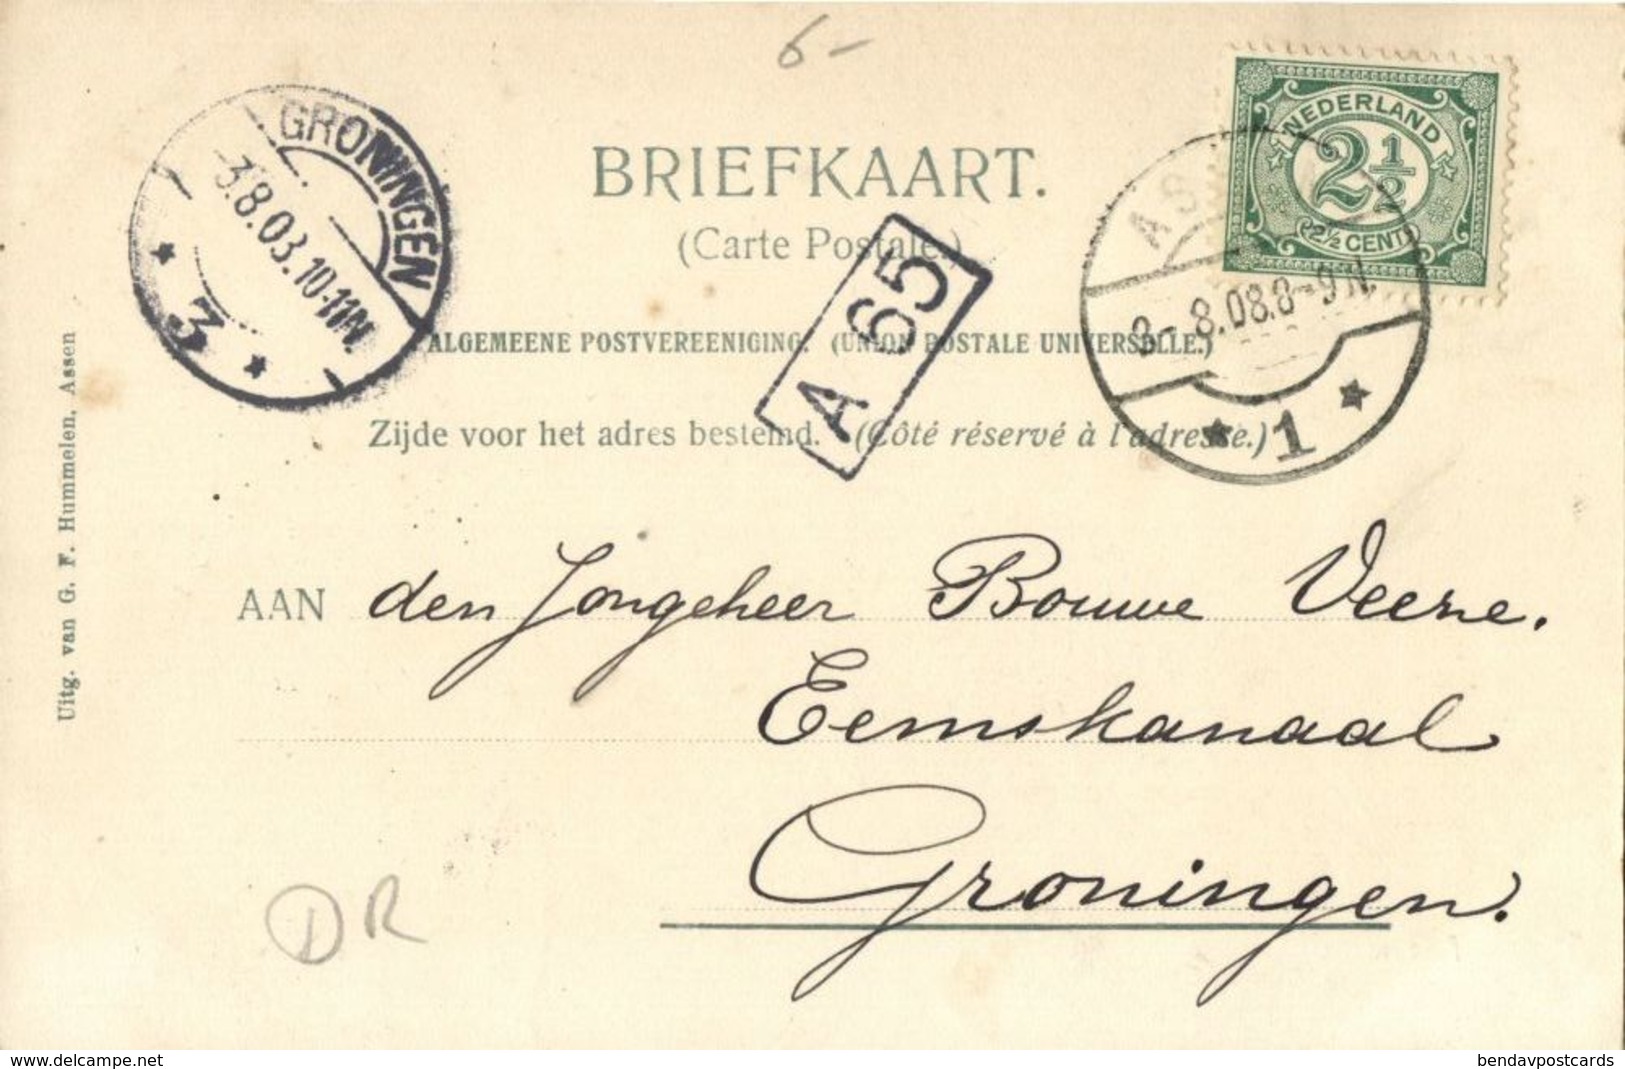 6-
NEDERLAND
2½
2½ CENT
GRONINGEN
3.8.03.10-11N.
3
BRIEFKAART.
(Carte Postale.)
A 65
8.08.8-9N.
1
ALGEMEENE POSTVEREENIGING. (UNION POSTALE UNIVERSELLE.)
Zijde voor het adres bestemd. (Côté réservé à l'adresse.)
Uitg. van G. F. Hummelen, Assen
AAN den Jongeheer Bouwe Veene.
Eemskanaal
Groningen.
DR
www.delcampe.net
bendavpostcards